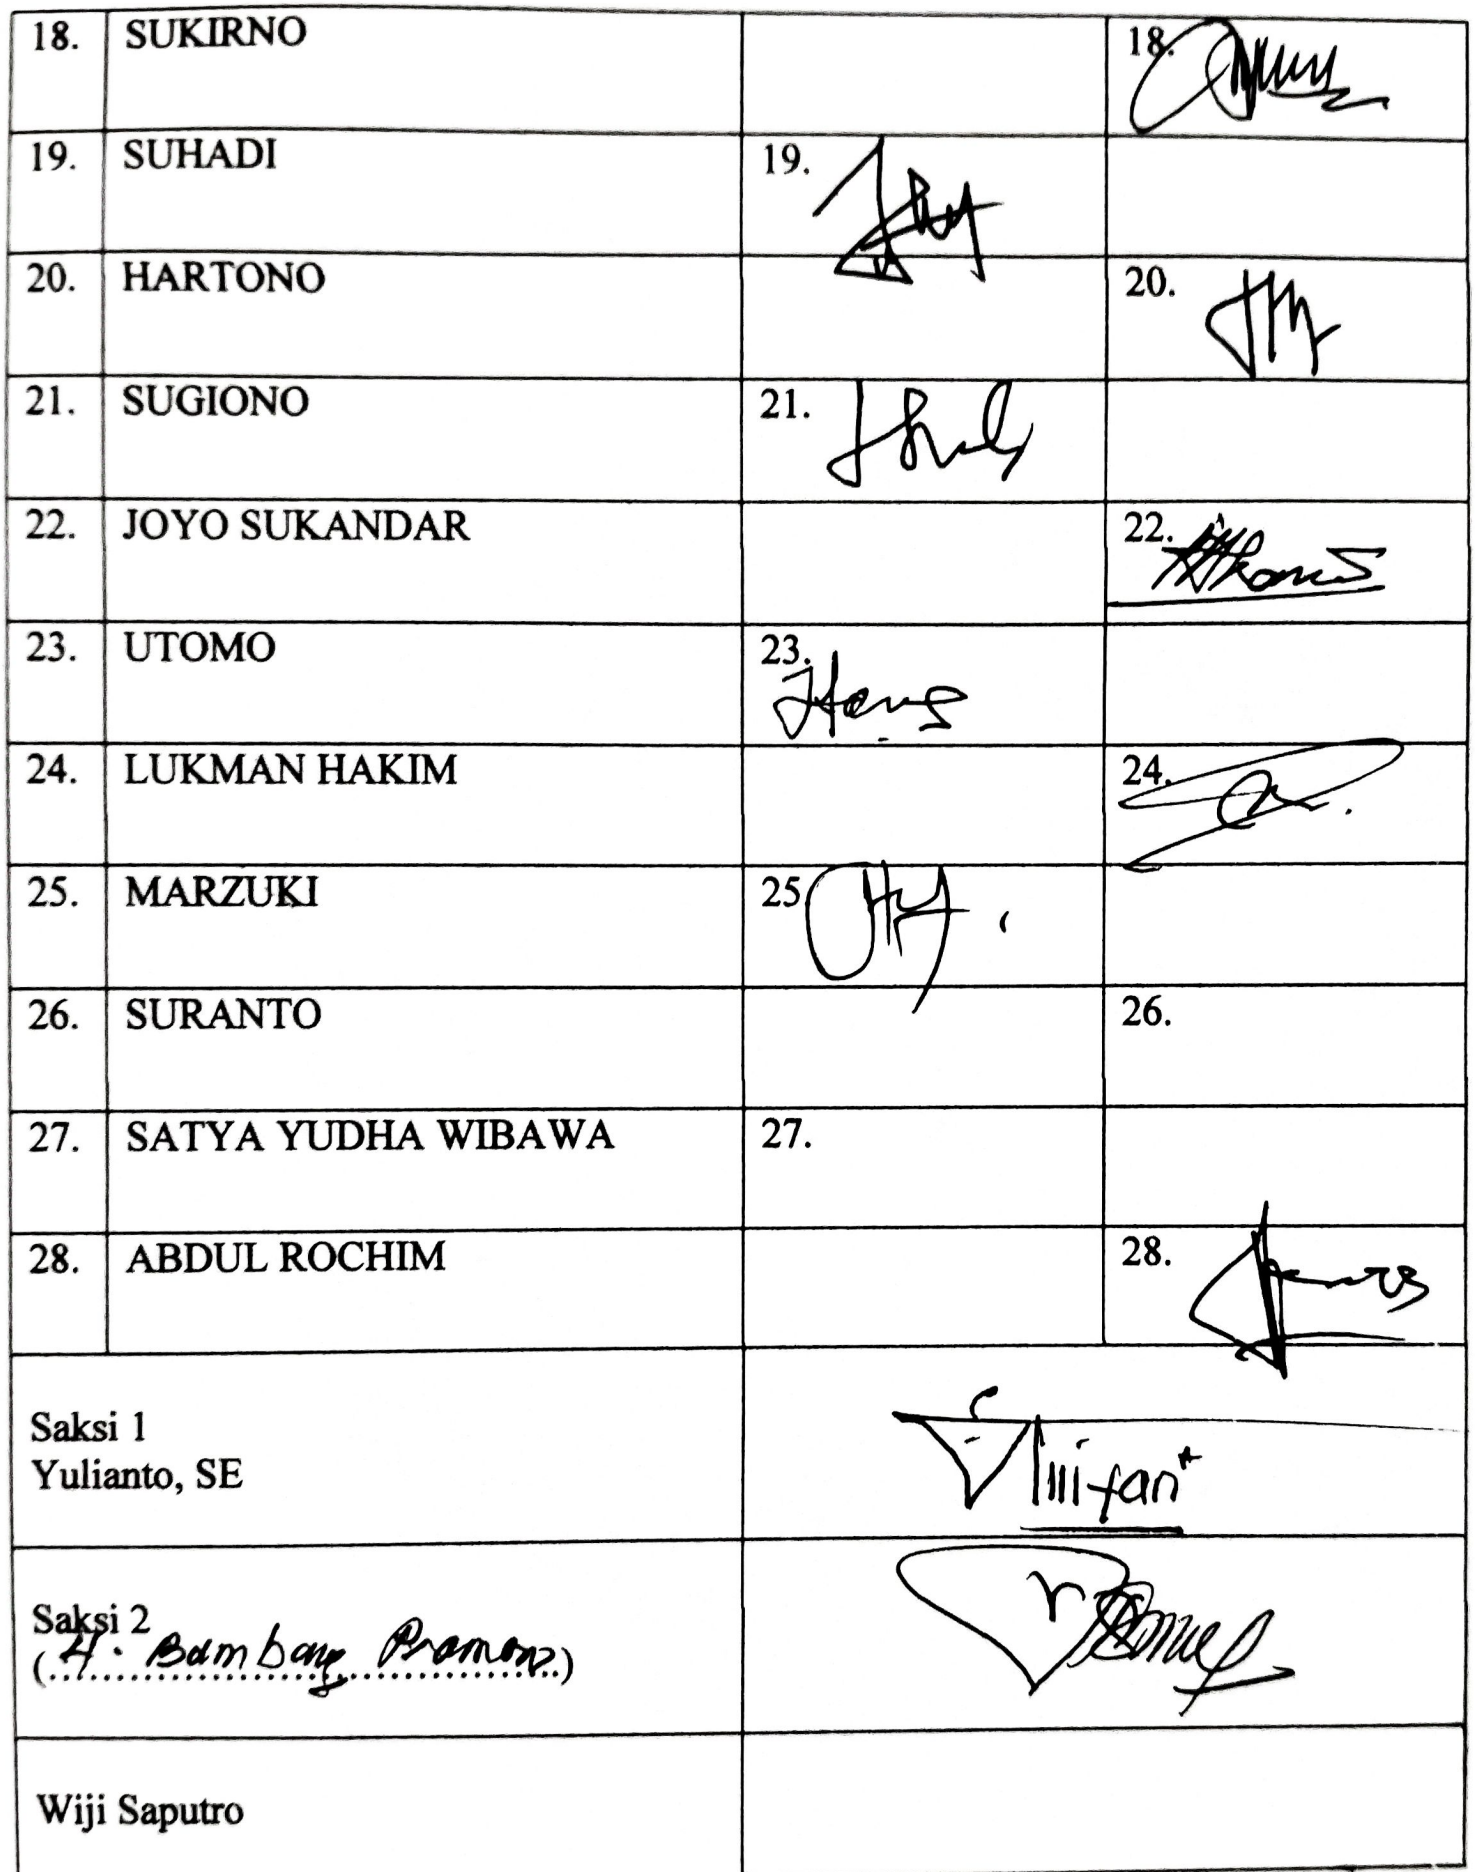 18. SUKIRNO 18.
19. SUHADI 19.
20. HARTONO 20.
21. SUGIONO 21.
22. JOYO SUKANDAR 22.
23. UTOMO 23.
24. LUKMAN HAKIM 24.
25. MARZUKI 25
26. SURANTO 26.
27. SATYA YUDHA WIBAWA 27.
28. ABDUL ROCHIM 28.
Saksi 1
Yulianto, SE
Saksi 2
(H. Bambang Pramono)
Wiji Saputro